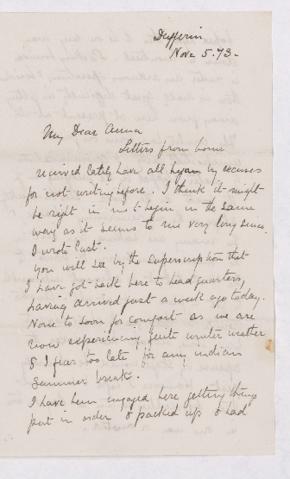 Dufferin
Nov. 5. 73 -
My Dear Anna
Letters from home
received lately have all began by excuses
for not writing before. I think it might
be right in me to begin in the same
way as it seems to me very long since
I wrote last.
You will see by the superscription that
I have got back here to head quarters,
having arrived just a week ago today.
None to soon for comfort as we are
now experiencing quite winter weather
& I fear too late for any indian
summer break.
I have been engaged here getting things
put in order & packed up & had